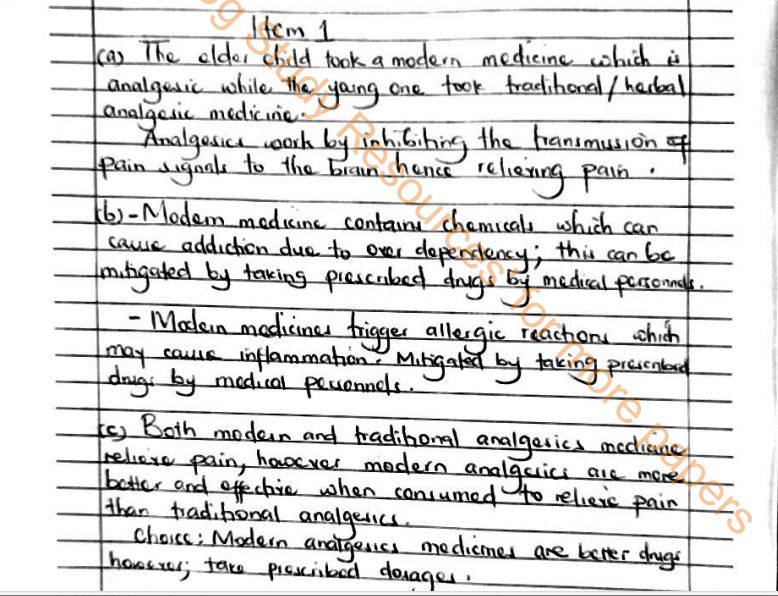 Item 1
(a) The elder child took a modern medicine which is
analgesic while the young one took traditional/herbal
analgesic medicine.
Analgesics work by inhibiting the transmission of
pain signals to the brain hence relieving pain.
(b) - Modern medicine contains chemicals which can
cause addiction due to over dependency; this can be
mitigated by taking prescribed drugs by medical personnels.
- Modern medicines trigger allergic reactions which
may cause inflammation. Mitigated by taking prescribed
drugs by medical personnels.
(c) Both modern and traditional analgesics medicine
relieve pain, however modern analgesics are more
better and effective when consumed to relieve pain
than traditional analgesics.
Choice: Modern analgesics medicines are better drugs
however; take prescribed dosages.
Study Resources for more papers